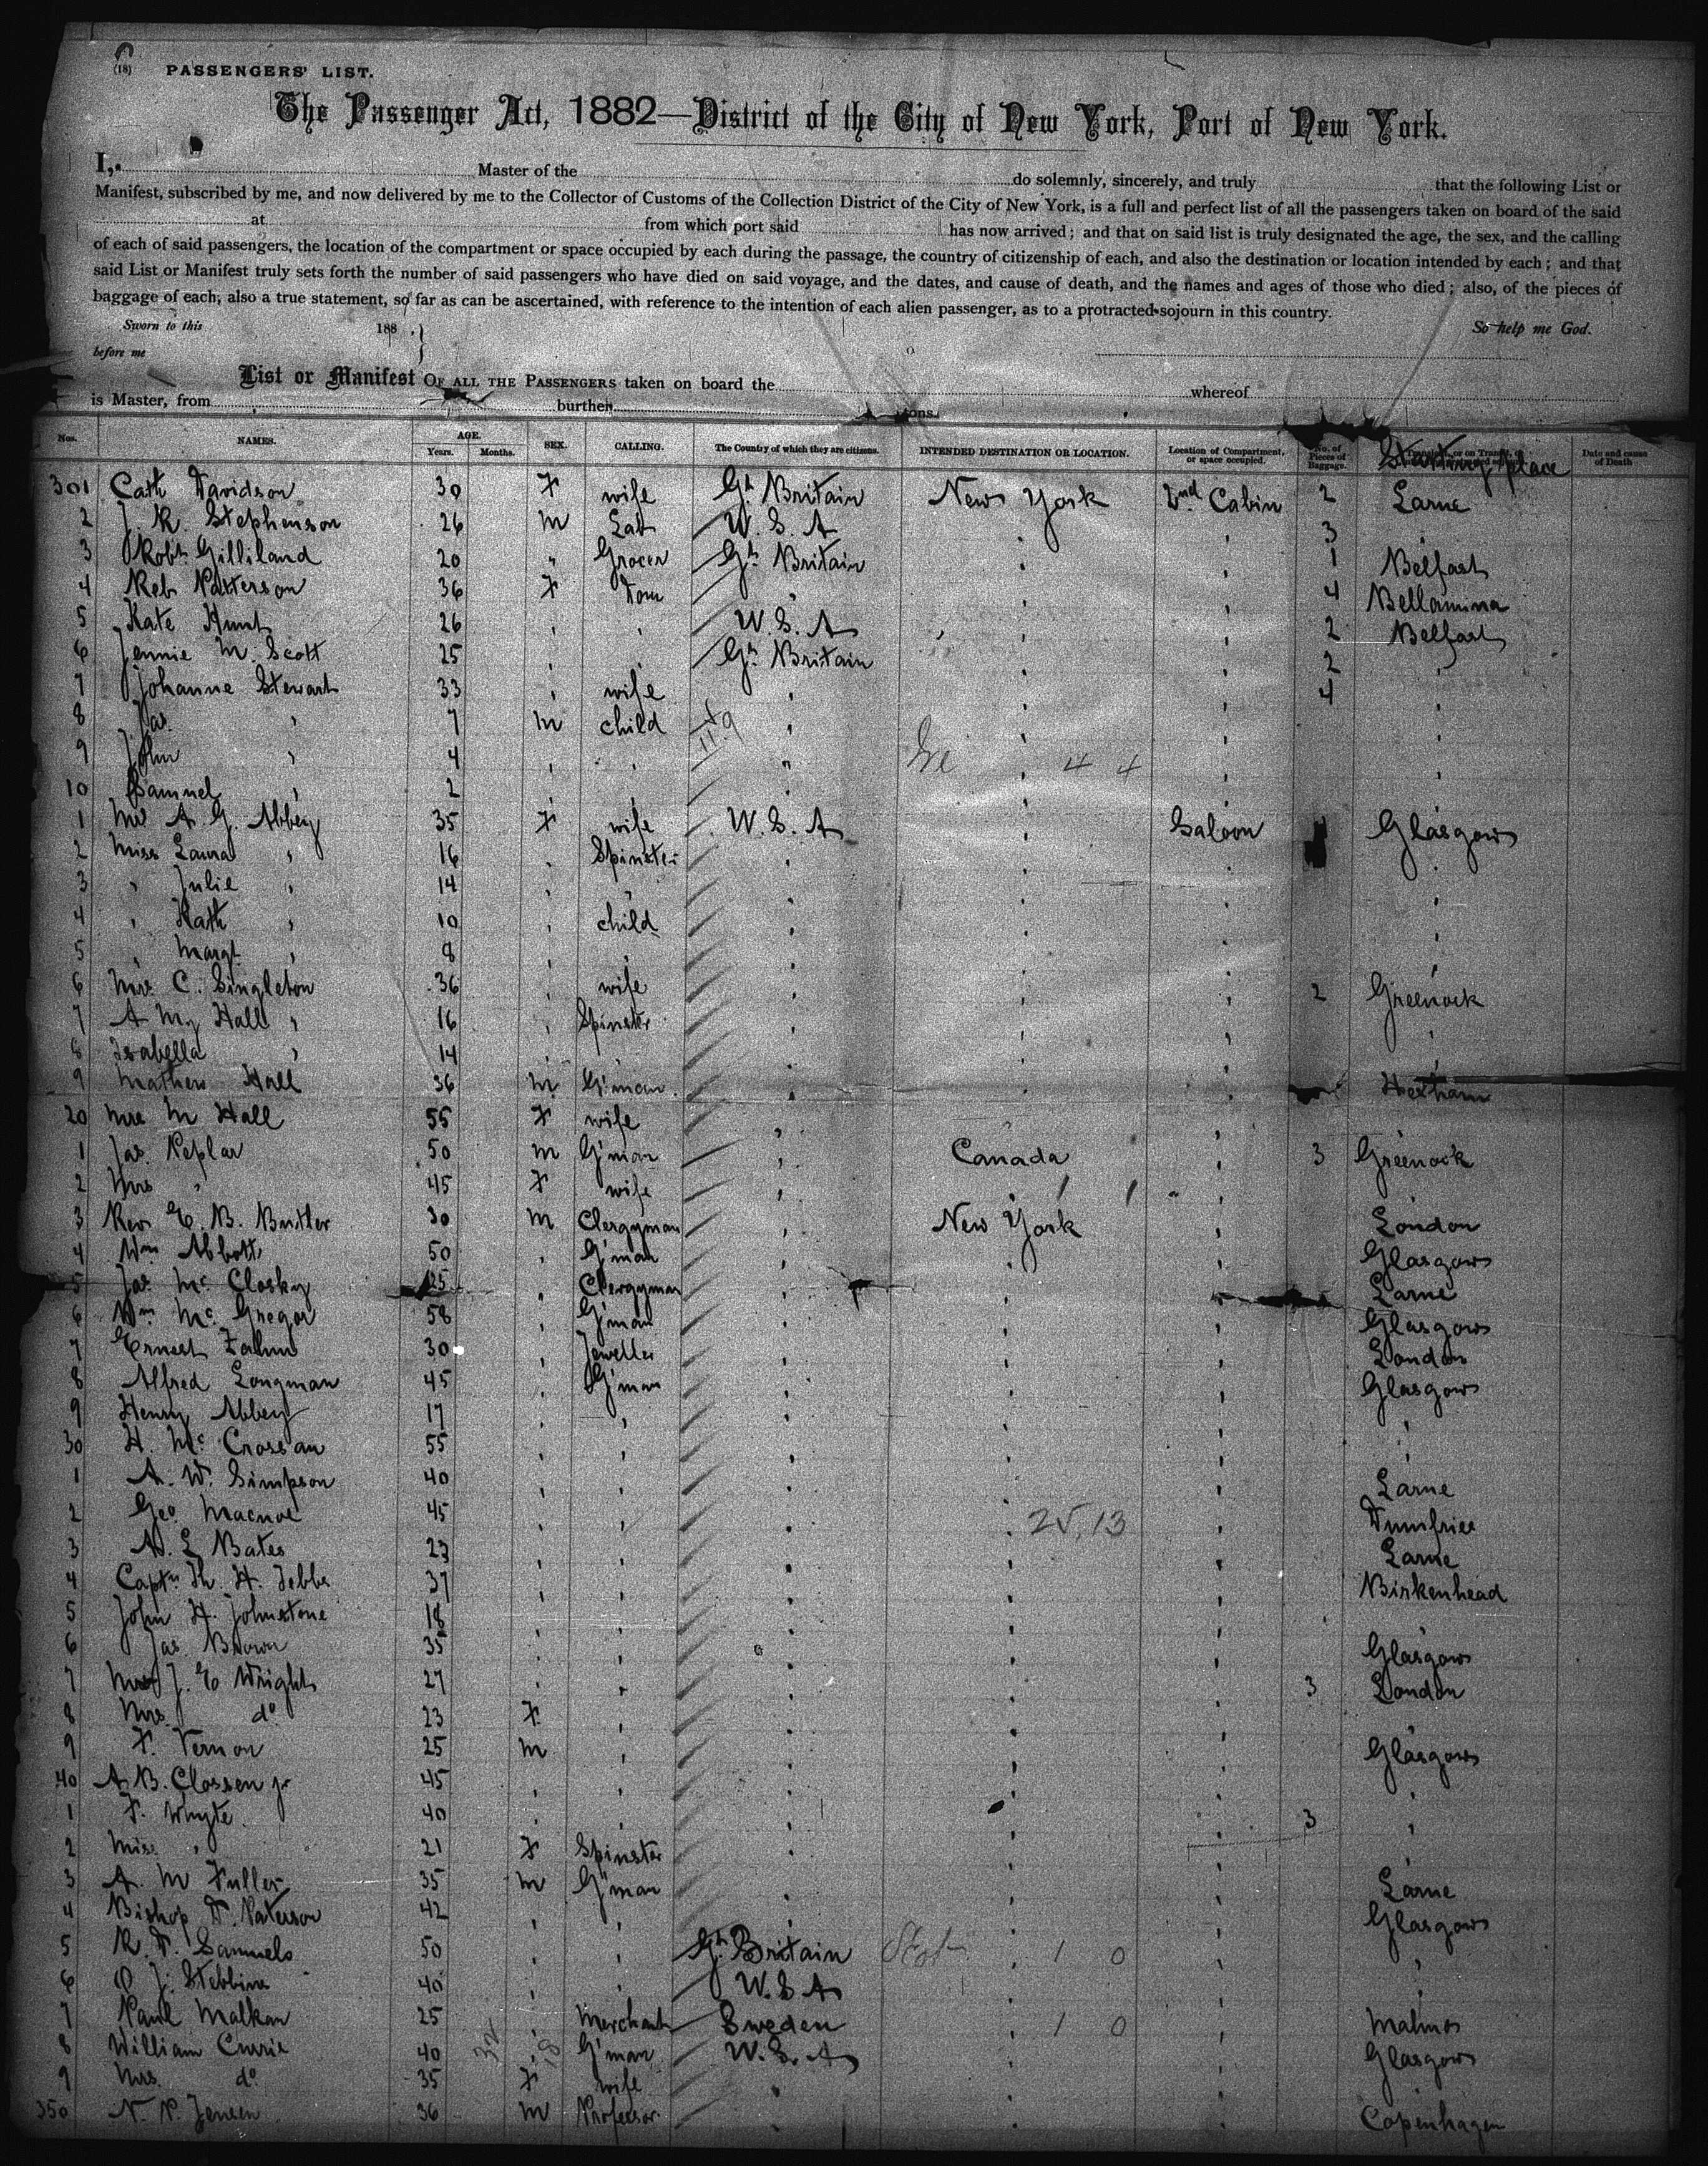 (18) PASSENGERS' LIST.
The Passenger Act, 1882—District of the City of New York, Port of New York.
I, Master of the do solemnly, sincerely, and truly that the following List or
Manifest, subscribed by me, and now delivered by me to the Collector of Customs of the Collection District of the City of New York, is a full and perfect list of all the passengers taken on board of the said
at from which port said has now arrived; and that on said list is truly designated the age, the sex, and the calling
of each of said passengers, the location of the compartment or space occupied by each during the passage, the country of citizenship of each, and also the destination or location intended by each; and that
said List or Manifest truly sets forth the number of said passengers who have died on said voyage, and the dates, and cause of death, and the names and ages of those who died; also, of the pieces of
baggage of each, also a true statement, so far as can be ascertained, with reference to the intention of each alien passenger, as to a protracted sojourn in this country.
Sworn to this 188 . So help me God.
before me
List or Manifest OF ALL THE PASSENGERS taken on board the whereof
is Master, from burthen tons.
Nos. NAMES. AGE. Years. Months. SEX. CALLING. The Country of which they are citizens. INTENDED DESTINATION OR LOCATION. Location of Compartment, or space occupied. No. of Pieces of Baggage. Starting place Date and cause of Death
301 Cath Davidson 30 F wife Gt Britain New York 2nd Cabin 2 Larne
2 J. R. Stephenson 26 M Lab U.S.A " " 3 "
3 Robt Gilliland 20 " Grocer Gt Britain " " 1 Belfast
4 Reb Patterson 36 F Dom " " " 4 Bellamina
5 Kate Hunt 26 " " U.S.A " " 2 Belfast
6 Jennie M. Scott 25 " " Gt Britain " " 2 "
7 Johanne Stewart 33 " wife " " " 4 "
8 Jas " 7 M child " " " "
9 John " 4 " " " " 4 4 " "
10 Samuel " 2 " " " " " "
1 Mrs A. G. Abbey 35 F wife U.S.A " Saloon Glasgow
2 Miss Laura " 16 " Spinster " " " "
3 " Julie " 14 " " " " " "
4 " Kath " 10 " child " " " "
5 " Margt " 8 " " " " " "
6 Mrs C. Singleton 36 " wife " " " 2 Greenock
7 A My Hall " 16 " Spinster " " " "
8 Isabella " 14 " " " " " "
9 Mathew Hall 36 M G'man " " " Hexham
20 Mrs M Hall 55 F wife " " "
1 Jas. Peplar 50 M G'man " Canada " 3 Greenock
2 Mrs " 45 F wife " " 1 1 " "
3 Rev E. B. Butler 30 M Clergyman " New York " London
4 Wm Abbott 50 " G'man " " " Glasgow
5 Jas. Mc Closky 25 " Clergyman " " " Larne
6 Wm Mc Gregor 58 " G'man " " " Glasgow
7 Ernest Zahn 30 " Jeweller " " " London
8 Alfred Longman 45 " G'man " " " Glasgow
9 Henry Abbey 17 " " " " " "
30 H. Mc Crossan 55 " " " " " "
1 A. W. Simpson 40 " " " " " Larne
2 Geo Macnoe 45 " " " " 25,13 " Dumfries
3 A. L Bates 23 " " " " " Larne
4 Captn Th. H. Tebbs 37 " " " " " Birkenhead
5 John H. Johnstone 18 " " " " " "
6 Jas Brown 35 " " " " " Glasgow
7 J. E Wright 27 " " " " " 3 London
8 Mrs. do 23 F " " " " "
9 F. Vernon 25 M " " " " Glasgow
40 A. B. Clossen jr 45 " " " " " "
1 F. Whyte 40 " " " " " 3 "
2 Miss " 21 F Spinster " " " "
3 A. M Fuller 35 M G'man " " " Larne
4 Bishop D. Paterson 42 " " " " " Glasgow
5 R. D. Samuels 50 " " Gt Britain " 1 0 " "
6 J. Stebbins 40 " " U.S.A " " "
7 Paul Malkan 25 " Merchant Sweden " 1 0 " Malmo
8 William Currie 40 " G'man U.S.A " " Glasgow
9 Mrs. do 35 F wife " " " "
350 N. P. Jensen 36 M Professor " " " Copenhagen